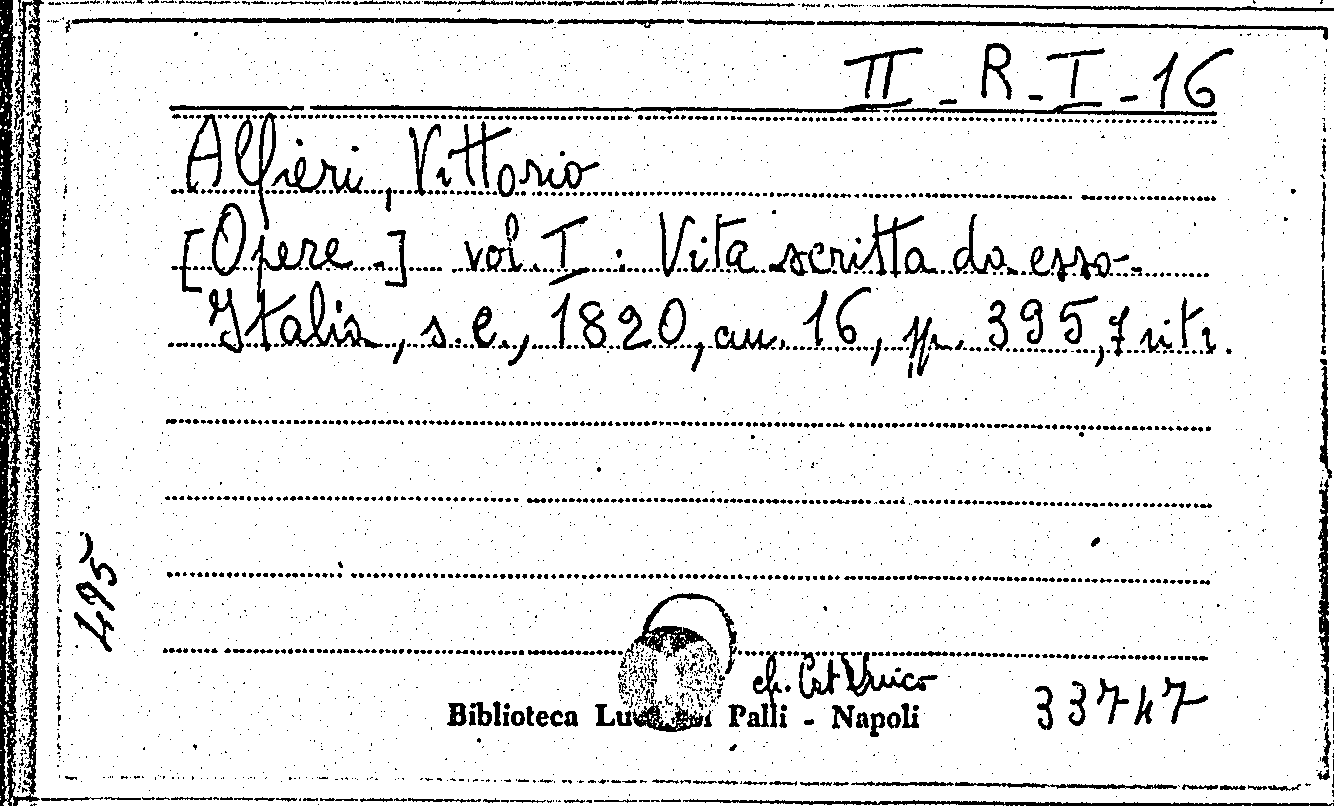 II - R - I - 16
Alfieri, Vittorio
[Opere.] vol. I : Vita scritta da esso.
Italia, s. e., 1820, in 16, pp. 395, 7 ritr.
495
Biblioteca Palli - Napoli
33747